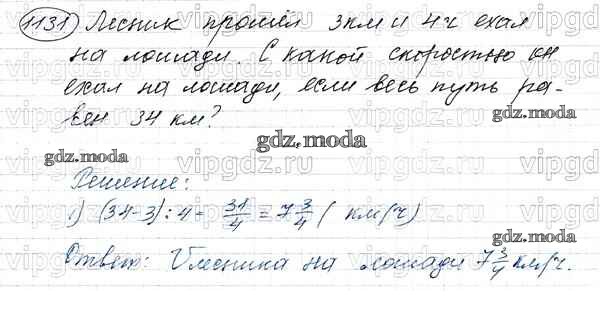 1131 Лесник прошёл 3км и 4ч ехал
на лошади. С какой скоростью он
ехал на лошади, если весь путь ра-
вен 34 км?
gdz.moda
gdz.moda
Решение:
1) (34-3):4= 31/4 = 7 3/4 ( км/ч)
gdz.moda
Ответ: Vлесника на лошади 7 3/4 км/ч.
gdz.moda